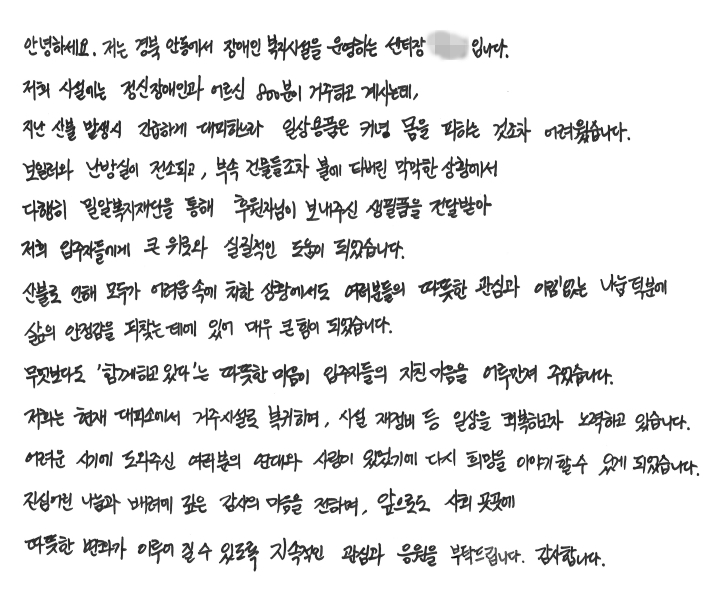 안녕하세요. 저는 경북 안동에서 장애인 복지시설을 운영하는 센터장 입니다.
저희 시설에는 정신장애인과 어르신 800분이 거주하고 계시는데,
지난 산불 발생시 긴급하게 대피하느라 일상용품은 커녕 몸을 피하는 것조차 어려웠습니다.
보일러와 난방실이 전소되고, 부속 건물들조차 불에 타버린 막막한 상황에서
다행히 밀알복지재단을 통해 후원자님이 보내주신 생필품을 전달받아
저희 입주자들에게 큰 위로와 실질적인 도움이 되었습니다.
산불로 인해 모두가 어려움 속에 처한 상황에서도 여러분들의 따뜻한 관심과 아낌없는 나눔 덕분에
삶의 안정감을 되찾는 데에 있어 매우 큰 힘이 되었습니다.
무엇보다도 '함께하고 있다'는 따뜻한 마음이 입주자들의 지친 마음을 어루만져 주었습니다.
저희는 현재 대피소에서 거주시설로 복귀하여, 시설 재정비 등 일상을 회복하고자 노력하고 있습니다.
어려운 시기에 도와주신 여러분의 연대와 사랑이 있었기에 다시 희망을 이야기할 수 있게 되었습니다.
진심어린 나눔과 배려에 깊은 감사의 마음을 전하며, 앞으로도 사회 곳곳에
따뜻한 변화가 이루어 질 수 있도록 지속적인 관심과 응원을 부탁드립니다. 감사합니다.